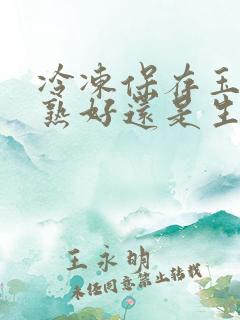 冷凍保存玉
熟好還是生
王永明
未任同意禁止转载